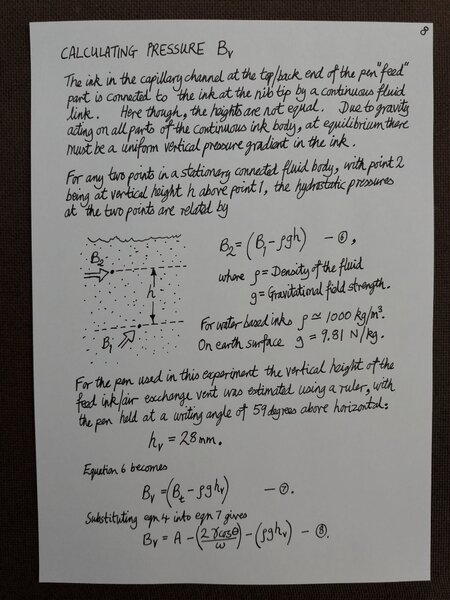 8
CALCULATING PRESSURE Bv
The ink in the capillary channel at the top/back end of the pen "feed"
part is connected to the ink at the nib tip by a continuous fluid
link. Here though, the heights are not equal. Due to gravity
acting on all parts of the continuous ink body, at equilibrium there
must be a uniform vertical pressure gradient in the ink.
For any two points in a stationary connected fluid body, with point 2
being at vertical height h above point 1, the hydrostatic pressures
at the two points are related by
B₂ = (B₁ - ρgh) — ⑥,
where ρ = Density of the fluid
g = Gravitational field strength.
For water based inks ρ ≃ 1000 kg/m³.
On earth surface g = 9.81 N/kg.
B₂
h
B₁
For the pen used in this experiment the vertical height of the
feed ink/air exchange vent was estimated using a ruler, with
the pen held at a writing angle of 59 degrees above horizontal:
hv = 28mm.
Equation 6 becomes
Bv = (Bt - ρghv) — ⑦.
Substituting eqn 4 into eqn 7 gives
Bv = A - (2γcosθ/ω) - (ρghv) — ⑧.